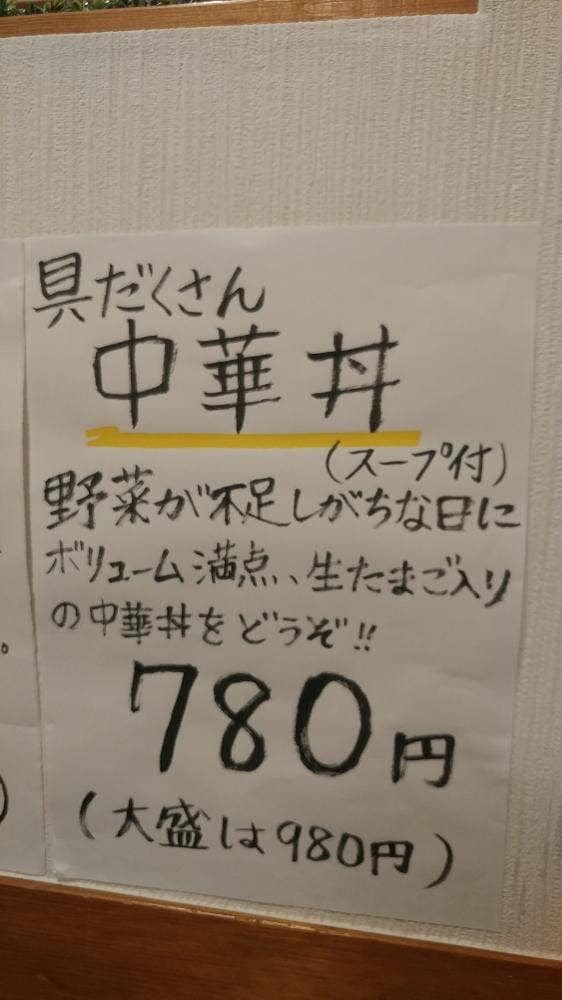 具だくさん
中華丼
(スープ付)
野菜が不足しがちな日に
ボリューム満点、生たまご入り
の中華丼をどうぞ!!
780円
(大盛は980円)